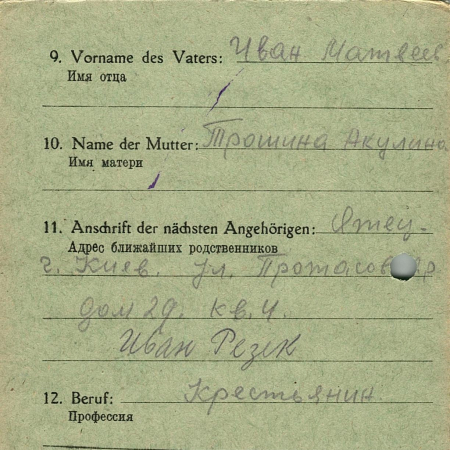 9. Vorname des Vaters: Иван Матвеев
Имя отца
10. Name der Mutter: Трошина Акулина
Имя матери
11. Anschrift der nächsten Angehörigen: Отец-
Адрес ближайших родственников
г. Киев. ул. Протасов Яр
дом 29. кв. 4.
Иван Резек
12. Beruf: Крестьянин
Профессия